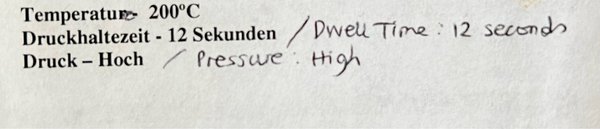 Temperatur- 200°C
Druckhaltezeit - 12 Sekunden / Dwell Time : 12 seconds
Druck – Hoch / Pressure : High